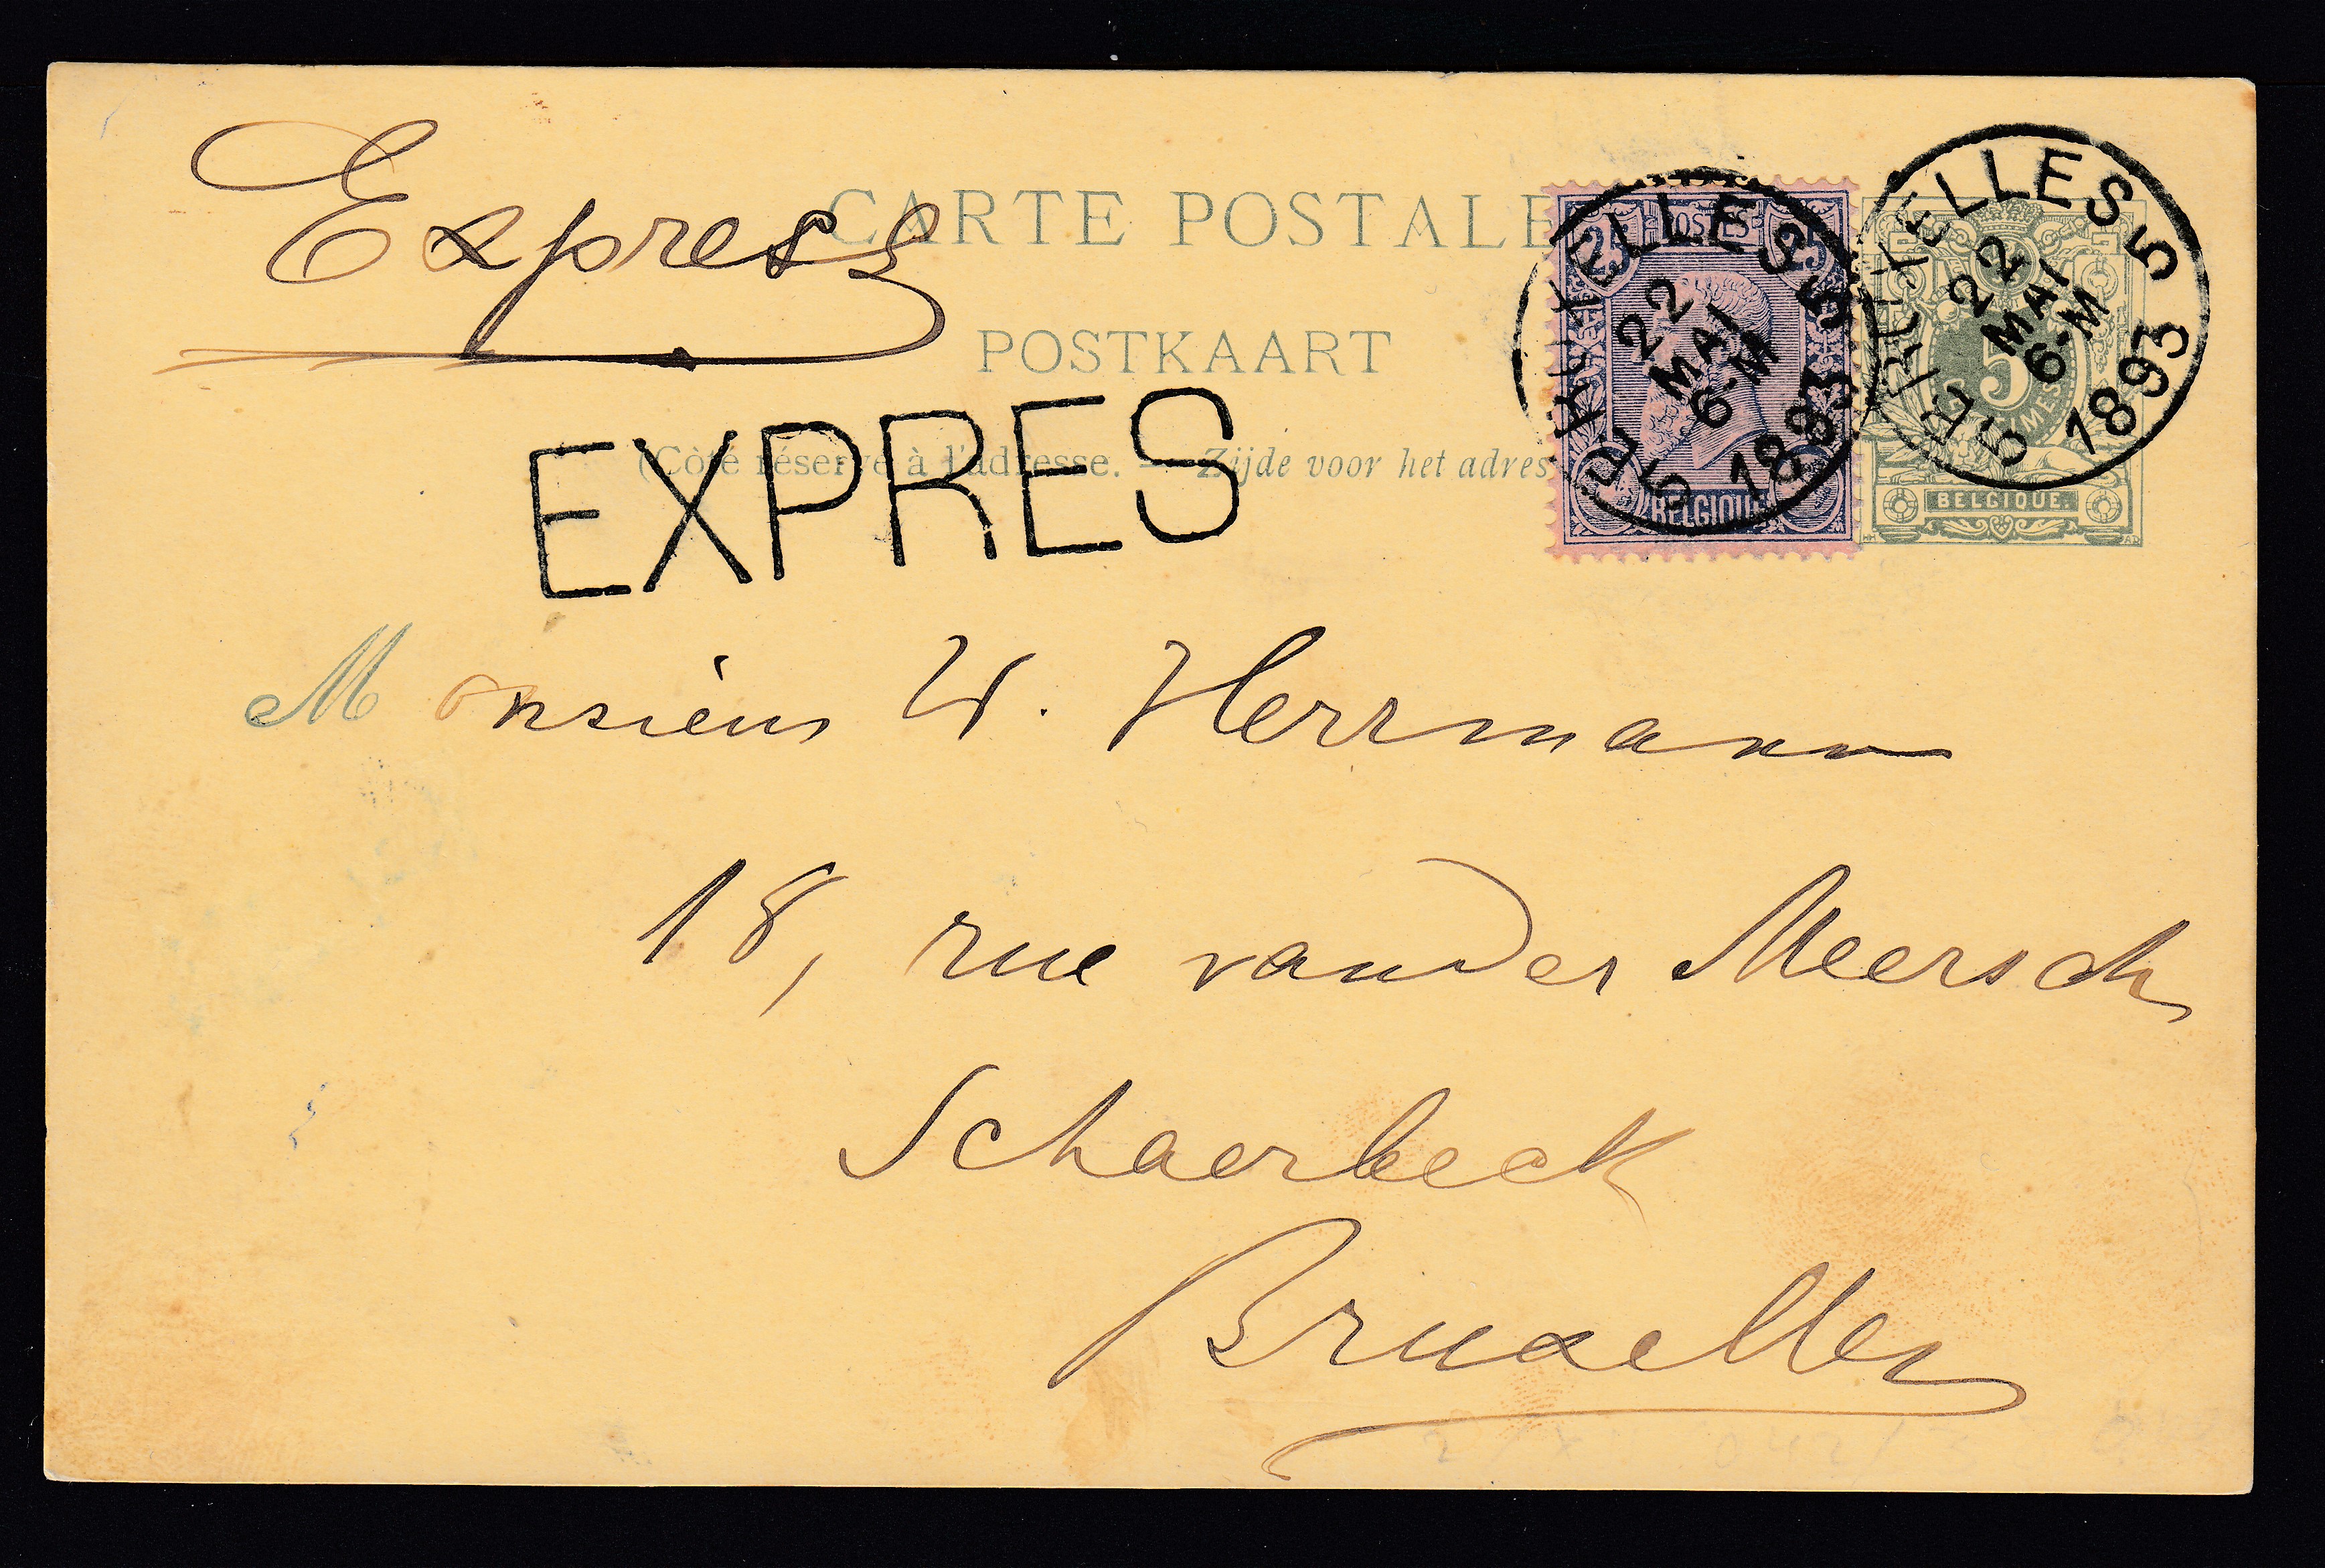 Express
CARTE POSTALE
POSTKAART
EXPRES
(Côté réservé à l'adresse. — Zijde voor het adres
POSTES
25 25
BELGIQUE
BRUXELLES 5
22
MAI
6-M
1893
5
BRUXELLES 5
22
MAI
6-M
1893
5
5
BELGIQUE.
Monsieur W. Herrmann
18, rue vander Meersch
Schaerbeek
Bruxelles